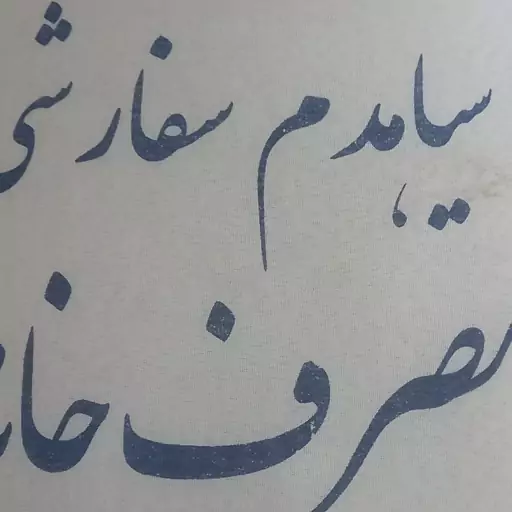 سیاهدم سفارشی
مصرف خار